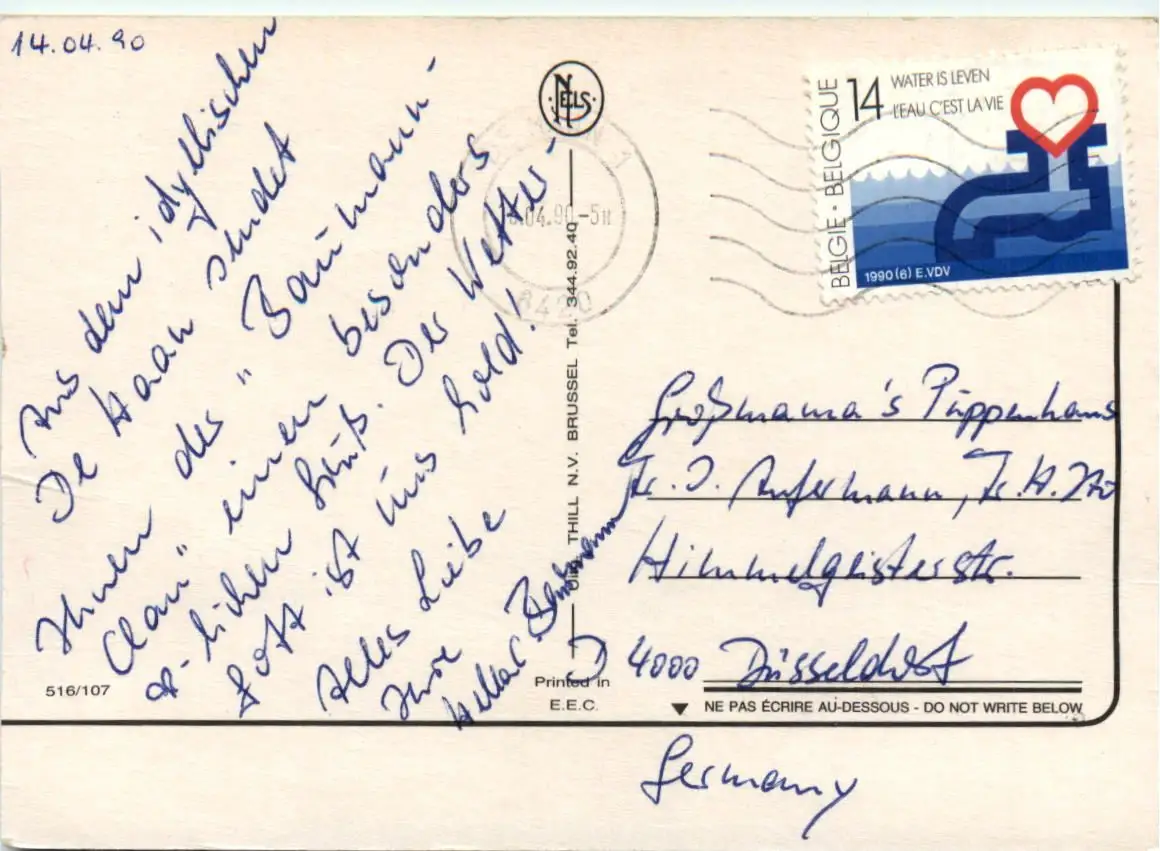 14.04.90
Aus dem idyllischen
De Haan sendet
Ihnen des "Baumann-
Clan" einen besonders
herzlichen Gruß. Der Wetter-
gott ist uns hold!
Alles Liebe
Ihre
NELS
04.90-5
8420
Thill N.V. BRUSSEL Tel. 344.92.40
516/107
Printed in
E.E.C.
BELGIE · BELGIQUE
14
WATER IS LEVEN
L'EAU C'EST LA VIE
1990 (6) E.VDV
Großmama's Puppenhaus
Fr. I. Aufermann, Fr. H.
Himmelgeisterstr.
D 4000 Düsseldorf
NE PAS ÉCRIRE AU-DESSOUS - DO NOT WRITE BELOW
Germany